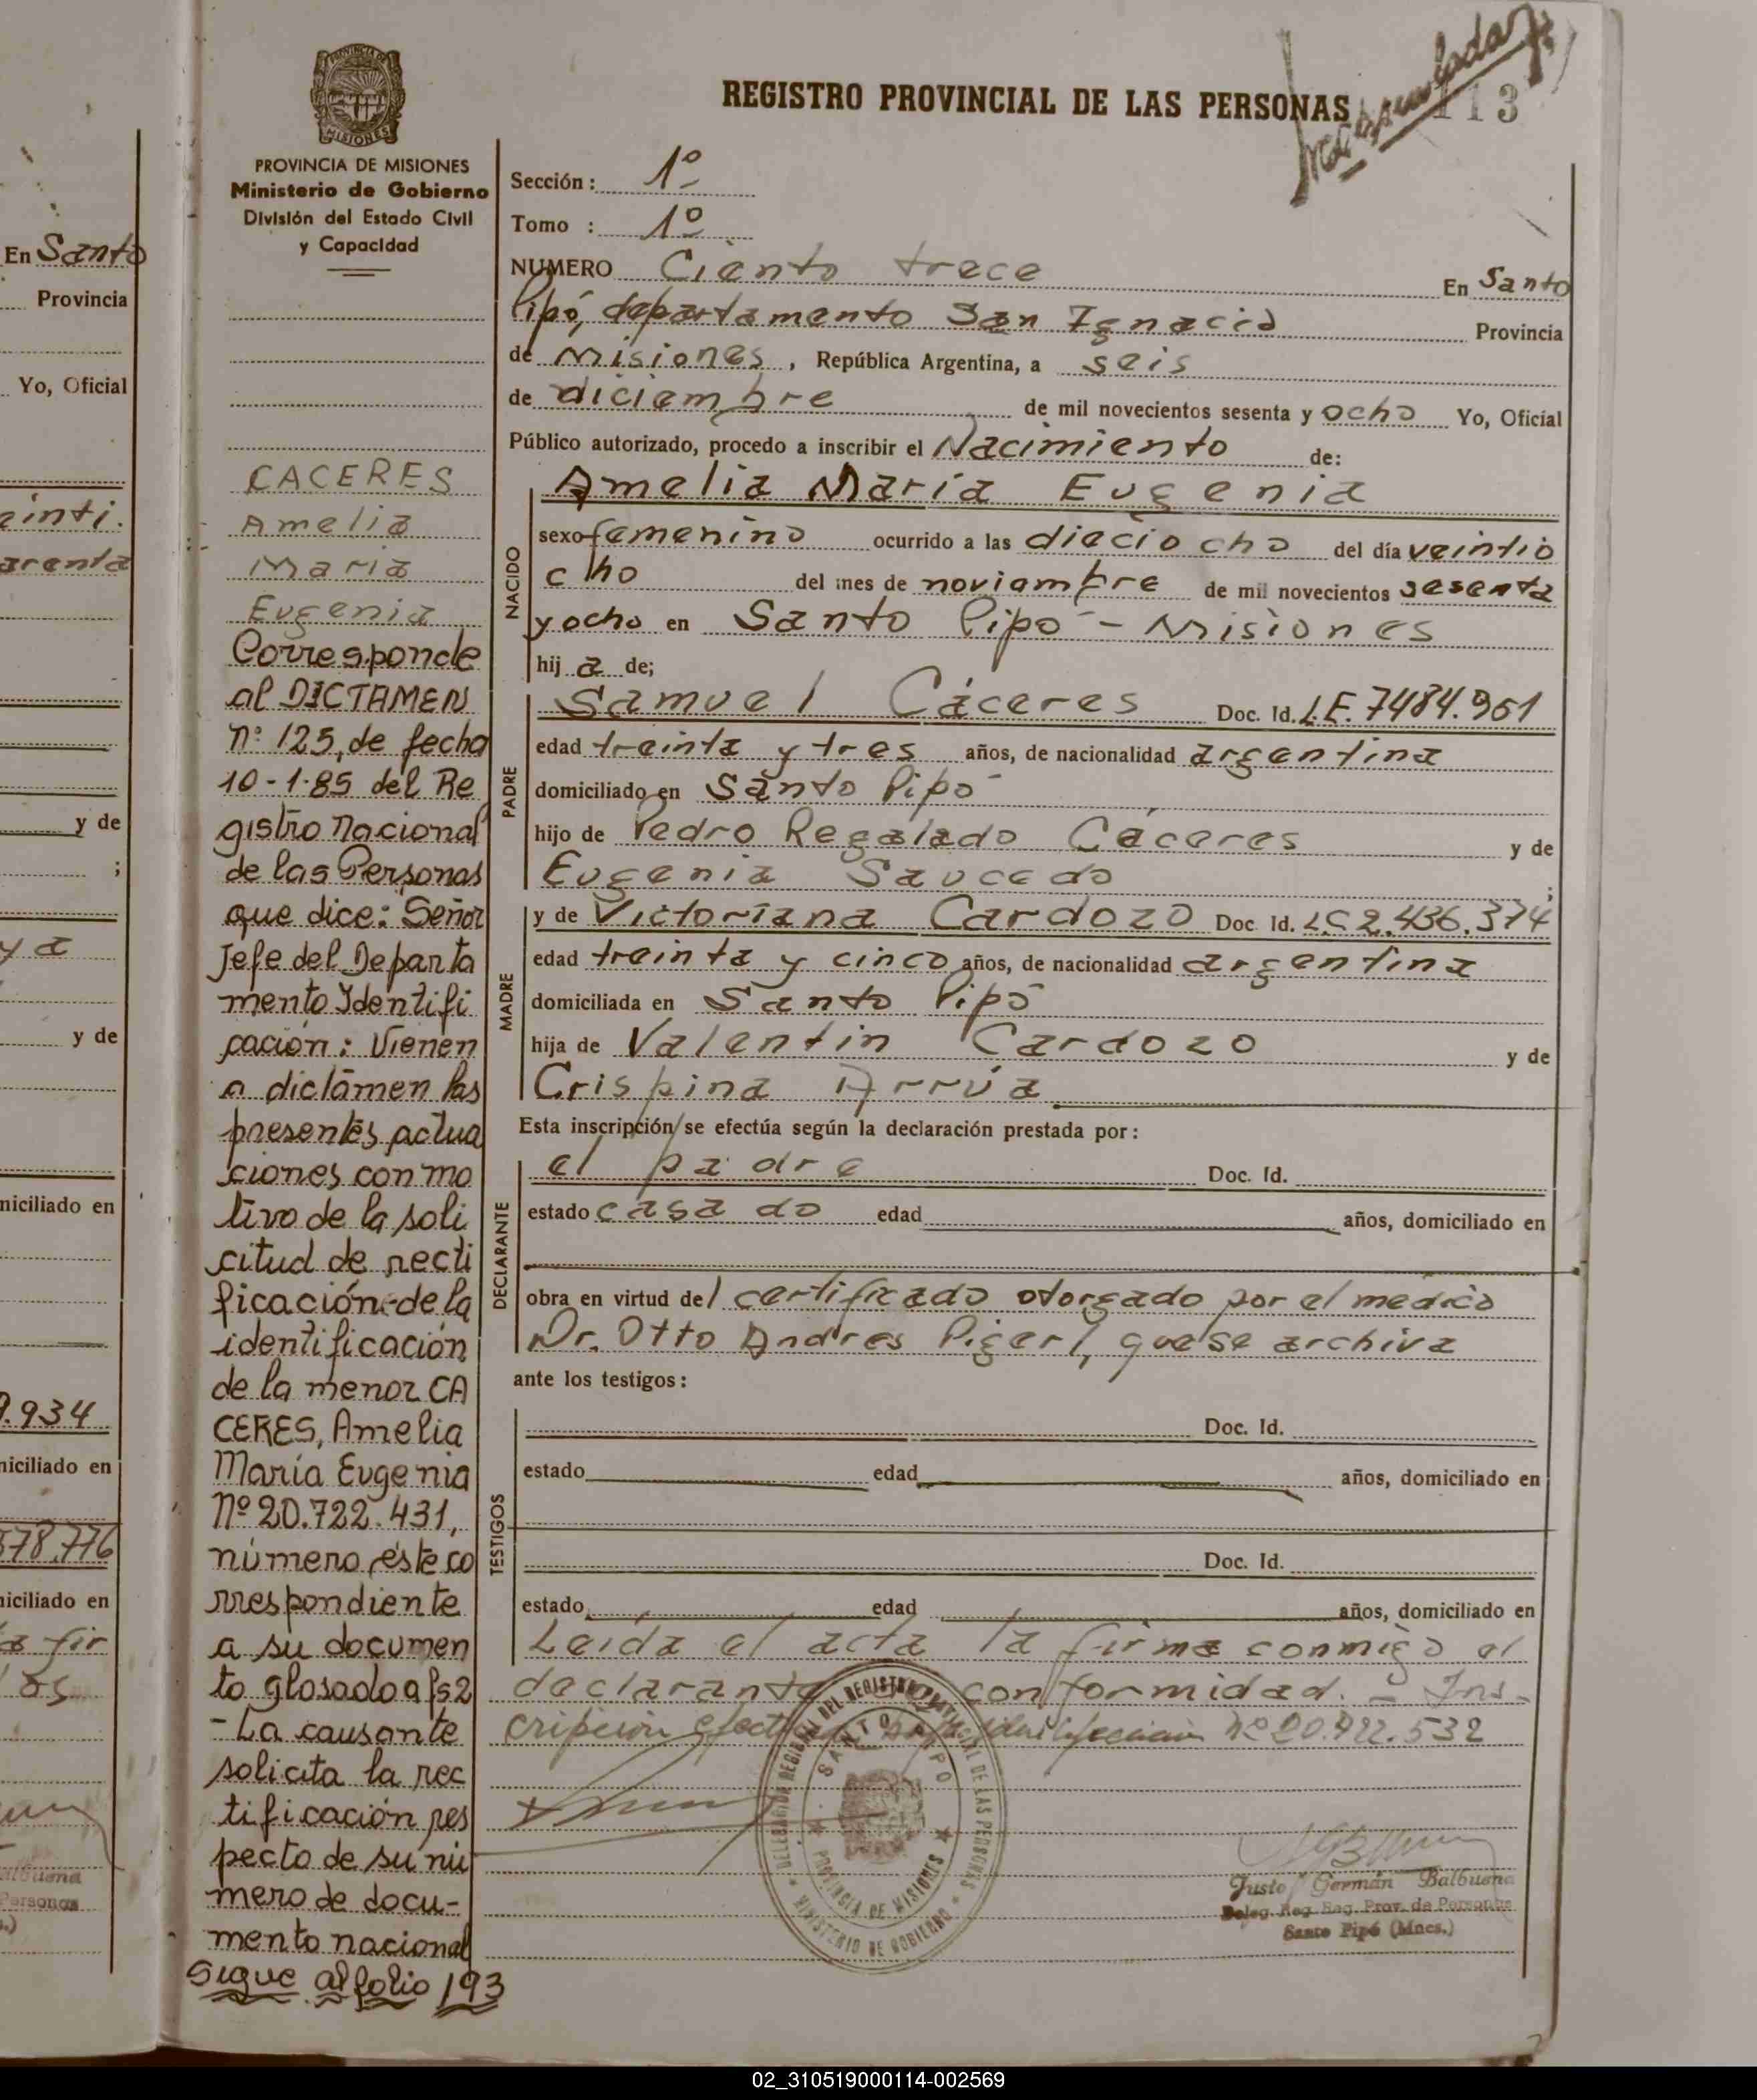 En Santo
Provincia
Yo, Oficial
einti.
arenta
y de
;
ya
y de
miciliado en
9.934
niciliado en
578.776
niciliado en
a fir
los
PROVINCIA DE
MISIONES
PROVINCIA DE MISIONES
Ministerio de Gobierno
División del Estado Civil
y Capacidad
CACERES
Amelia
Maria
Eugenia
Corresponde
al DICTAMEN
nº 125, de fecha
10-1-85 del Re
gistro Nacional
de las Personas
que dice: Señor
Jefe del Departa
mento Identifi
cación: Vienen
a dictámen las
presentes actua
ciones con mo
tivo de la soli
citud de recti
ficación de la
identificación
de la menor CA
CERES, Amelia
María Eugenia
Nº 20.722.431,
número éste co
rrespondiente
a su documen
to glosado a fs 2
- La causante
solicita la rec
tificación res
pecto de su nú
mero de docu-
mento nacional
Sigue al folio 193
REGISTRO PROVINCIAL DE LAS PERSONAS
113
Sección: 1º
Tomo : 1º
NUMERO Ciento trece En Santo
Pipó, departamento San Ignacio Provincia
de Misiones, República Argentina, a seis
de diciembre de mil novecientos sesenta y ocho Yo, Oficial
Público autorizado, procedo a inscribir el Nacimiento de:
Amelia María Eugenia
NACIDO
sexo femenino ocurrido a las dieciocho del día veintio
cho del mes de noviembre de mil novecientos sesenta
y ocho en Santo Pipó - Misiones
hij a de;
PADRE
Samuel Cáceres Doc. Id. L.E. 7484.961
edad treinta y tres años, de nacionalidad argentina
domiciliado en Santo Pipó
hijo de Pedro Regalado Cáceres y de
Eugenia Saucedo ;
MADRE
y de Victoriana Cardozo Doc. Id. L.C 2.436.374
edad treinta y cinco años, de nacionalidad argentina
domiciliada en Santo Pipó
hija de Valentin Cardozo y de
Crispina Arrúa
Esta inscripción se efectúa según la declaración prestada por:
DECLARANTE
el padre Doc. Id.
estado casado edad años, domiciliado en
obra en virtud del certificado otorgado por el médico
Dr. Otto Andres Pigerl, que se archiva
ante los testigos:
TESTIGOS
Doc. Id.
estado edad años, domiciliado en
Doc. Id.
estado edad años, domiciliado en
Leída el acta la firma conmigo el
declarante conformidad. - Ins-
cripción Nº 20.922.532
SANTO PIPO
PROVINCIA DE MISIONES
MINISTERIO DE GOBIERNO
Justo Germán Balbuena
Deleg. Reg. Prov. de Personas
Santo Pipó (Mnes.)
02_310519000114-002569